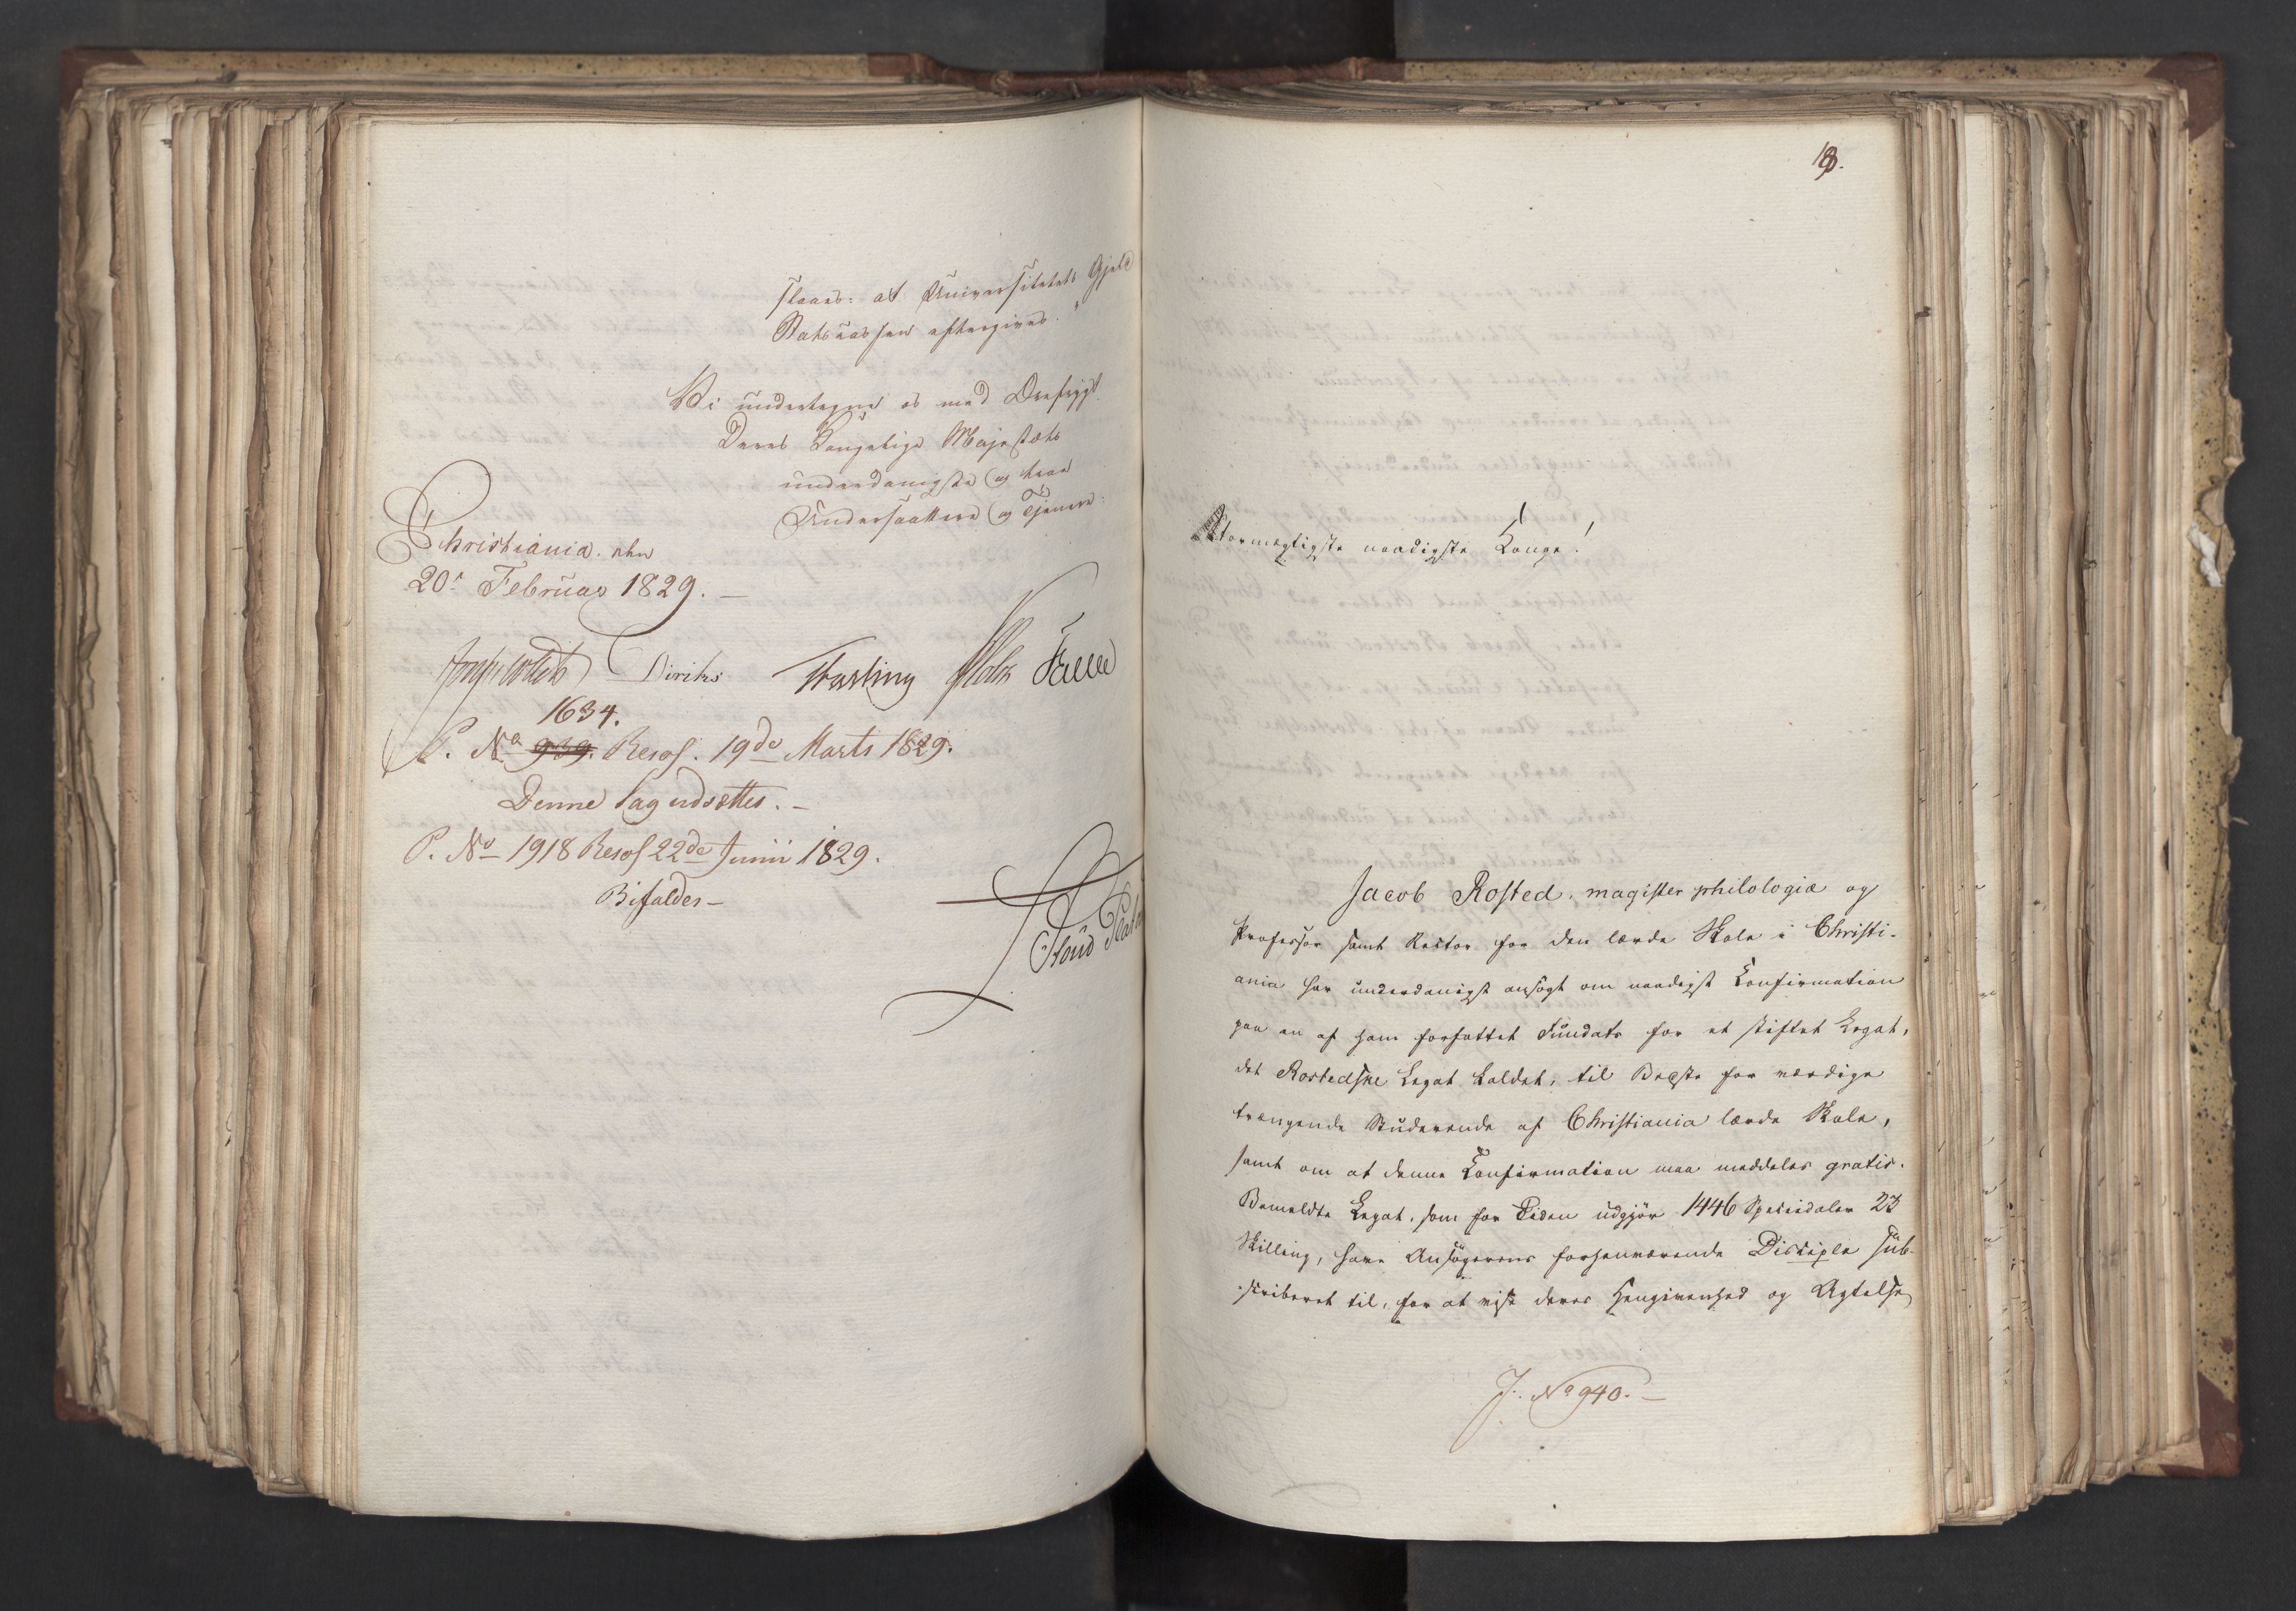 slaaes: at Universitetets Gjeld
Statscassen eftergives."
Vi undertegne os med Ærefrygt
Deres Kongelige Majestæts
underdanigste og troe
Undersaattere og Tjenere:
Christiania den
20de Februar 1829. —
Diriks Fasting Holst
1634.
P. No 939. Resol. 19de Marts 1829.
Denne Sag udsættes. —
P. No 1918 Resol 22de Junii 1829.
Bifaldes —
18.
Stormægtigste naadigste Konge!
Jacob Rosted, magister philologiæ og
Professor samt Rector for den lærde Skole i Christi-
ania har underdanigst ansøgt om naadigst Confirmation
paa en af ham forfattet Fundats for et stiftet Legat,
det Rostedske Legat kaldet, til Bedste for værdige
trængende Studerende af Christiania lærde Skole,
samt om at denne Confirmation maa meddeles gratis.
Bemeldte Legat, som for Tiden udgjør 1446 Speciedaler 23
Skilling, have Ansøgerens forhenværende Disciple sub-
scriberet til, for at vise deres Hengivenhed og Agtelse
J. No 940. —